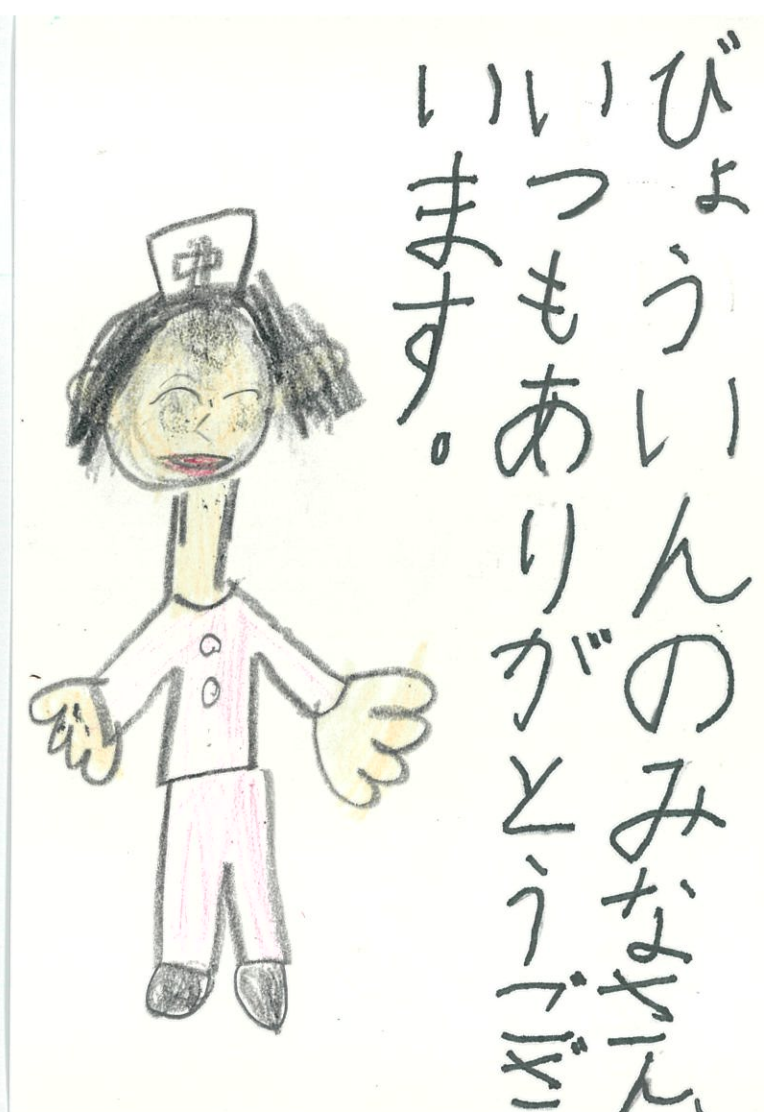 びょういんのみなさん、
いつもありがとうござ
います。